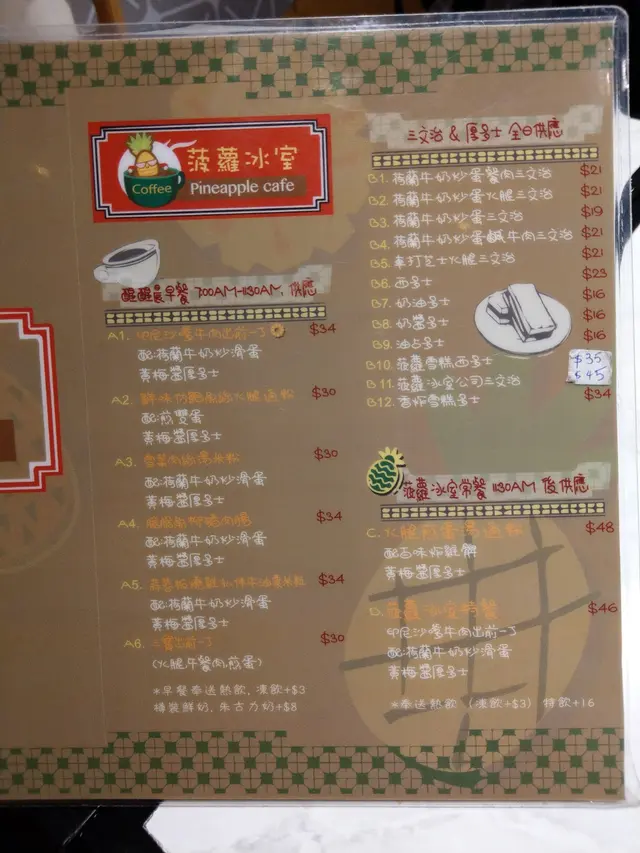 菠蘿冰室
Coffee Pineapple cafe
醒醒晨早餐 7:00AM-11:30AM, 供應
A1. 印尼沙嗲牛肉出前一丁 $34
配:荷蘭牛奶炒滑蛋
黃梅醬厚多士
A2. 火腿通粉 $30
配:煎雙蛋
黃梅醬厚多士
A3. 雪菜肉絲湯米粉 $30
配:荷蘭牛奶炒滑蛋
黃梅醬厚多士
A4. $34
配:荷蘭牛奶炒滑蛋
黃梅醬厚多士
A5. $34
配:荷蘭牛奶炒滑蛋
黃梅醬厚多士
A6. 出前一丁 $30
(火腿午餐肉煎蛋)
*早餐奉送熱飲, 凍飲+$3
樽裝鮮奶, 朱古力奶+$8
三文治 & 厚多士 全日供應
B1. 荷蘭牛奶炒蛋餐肉三文治 $21
B2. 荷蘭牛奶炒蛋火腿三文治 $21
B3. 荷蘭牛奶炒蛋三文治 $19
B4. 荷蘭牛奶炒蛋鹹牛肉三文治 $21
B5. 車打芝士火腿三文治 $21
B6. 西多士 $23
B7. 奶油多士 $16
B8. 奶醬多士 $16
B9. 油占多士 $16
B10. 菠蘿雪糕西多士 $35
B11. 菠蘿冰室公司三文治 $45
B12. 香炸雪糕多士 $34
菠蘿冰室常餐 11:30AM 後供應
C. 火腿煎蛋湯通粉 $48
配百味炸雞髀
黃梅醬厚多士
D. 菠蘿冰室特餐 $46
印尼沙嗲牛肉出前一丁
配:荷蘭牛奶炒滑蛋
黃梅醬厚多士
*奉送熱飲 (凍飲+$3) 特飲+16